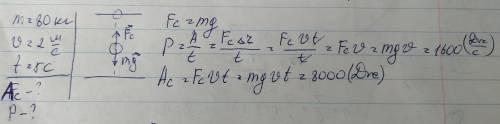 m=80 кг
v=2 м/с
t=5с
Aс-?
P-?
F⃗c
mg⃗
Fc = mg
P = A/t = FcΔr/t = Fcvt/t = Fcv = mgv = 1600 (Дж/с)
Ac = Fcvt = mgvt = 8000 (Дж)